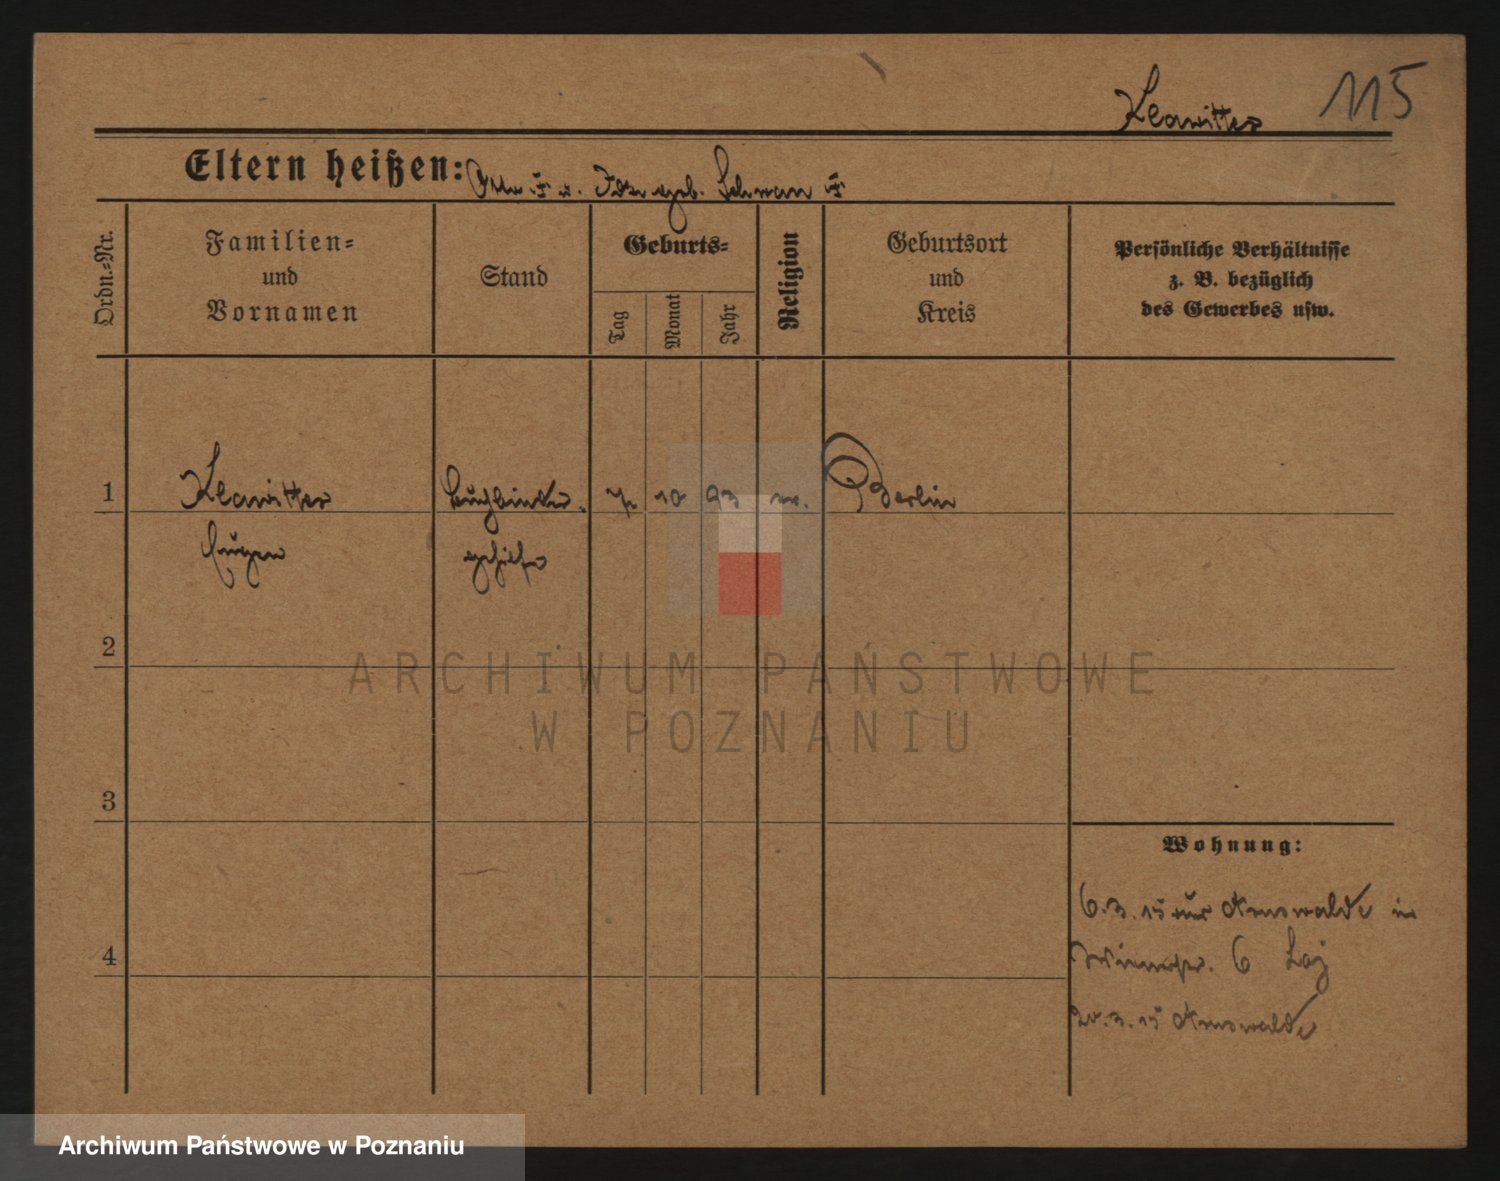 Klawitter 115
Eltern heißen: Otto † u. Ida geb. Schwan †
Ordn.=Nr.
Familien=
und
Vornamen
Stand
Geburts=
Tag
Monat
Jahr
Religion
Geburtsort
und
Kreis
Persönliche Verhältnisse
z. B. bezüglich
des Gewerbes usw.
1 Klawitter Buchbinder- 7 10 93 ev. Berlin
Eugen gehilfe
2
3
4
Wohnung:
6.3.15 aus Arnswalde in
6
20.3.15 Arnswalde
ARCHIWUM PAŃSTWOWE
W POZNANIU
Archiwum Państwowe w Poznaniu